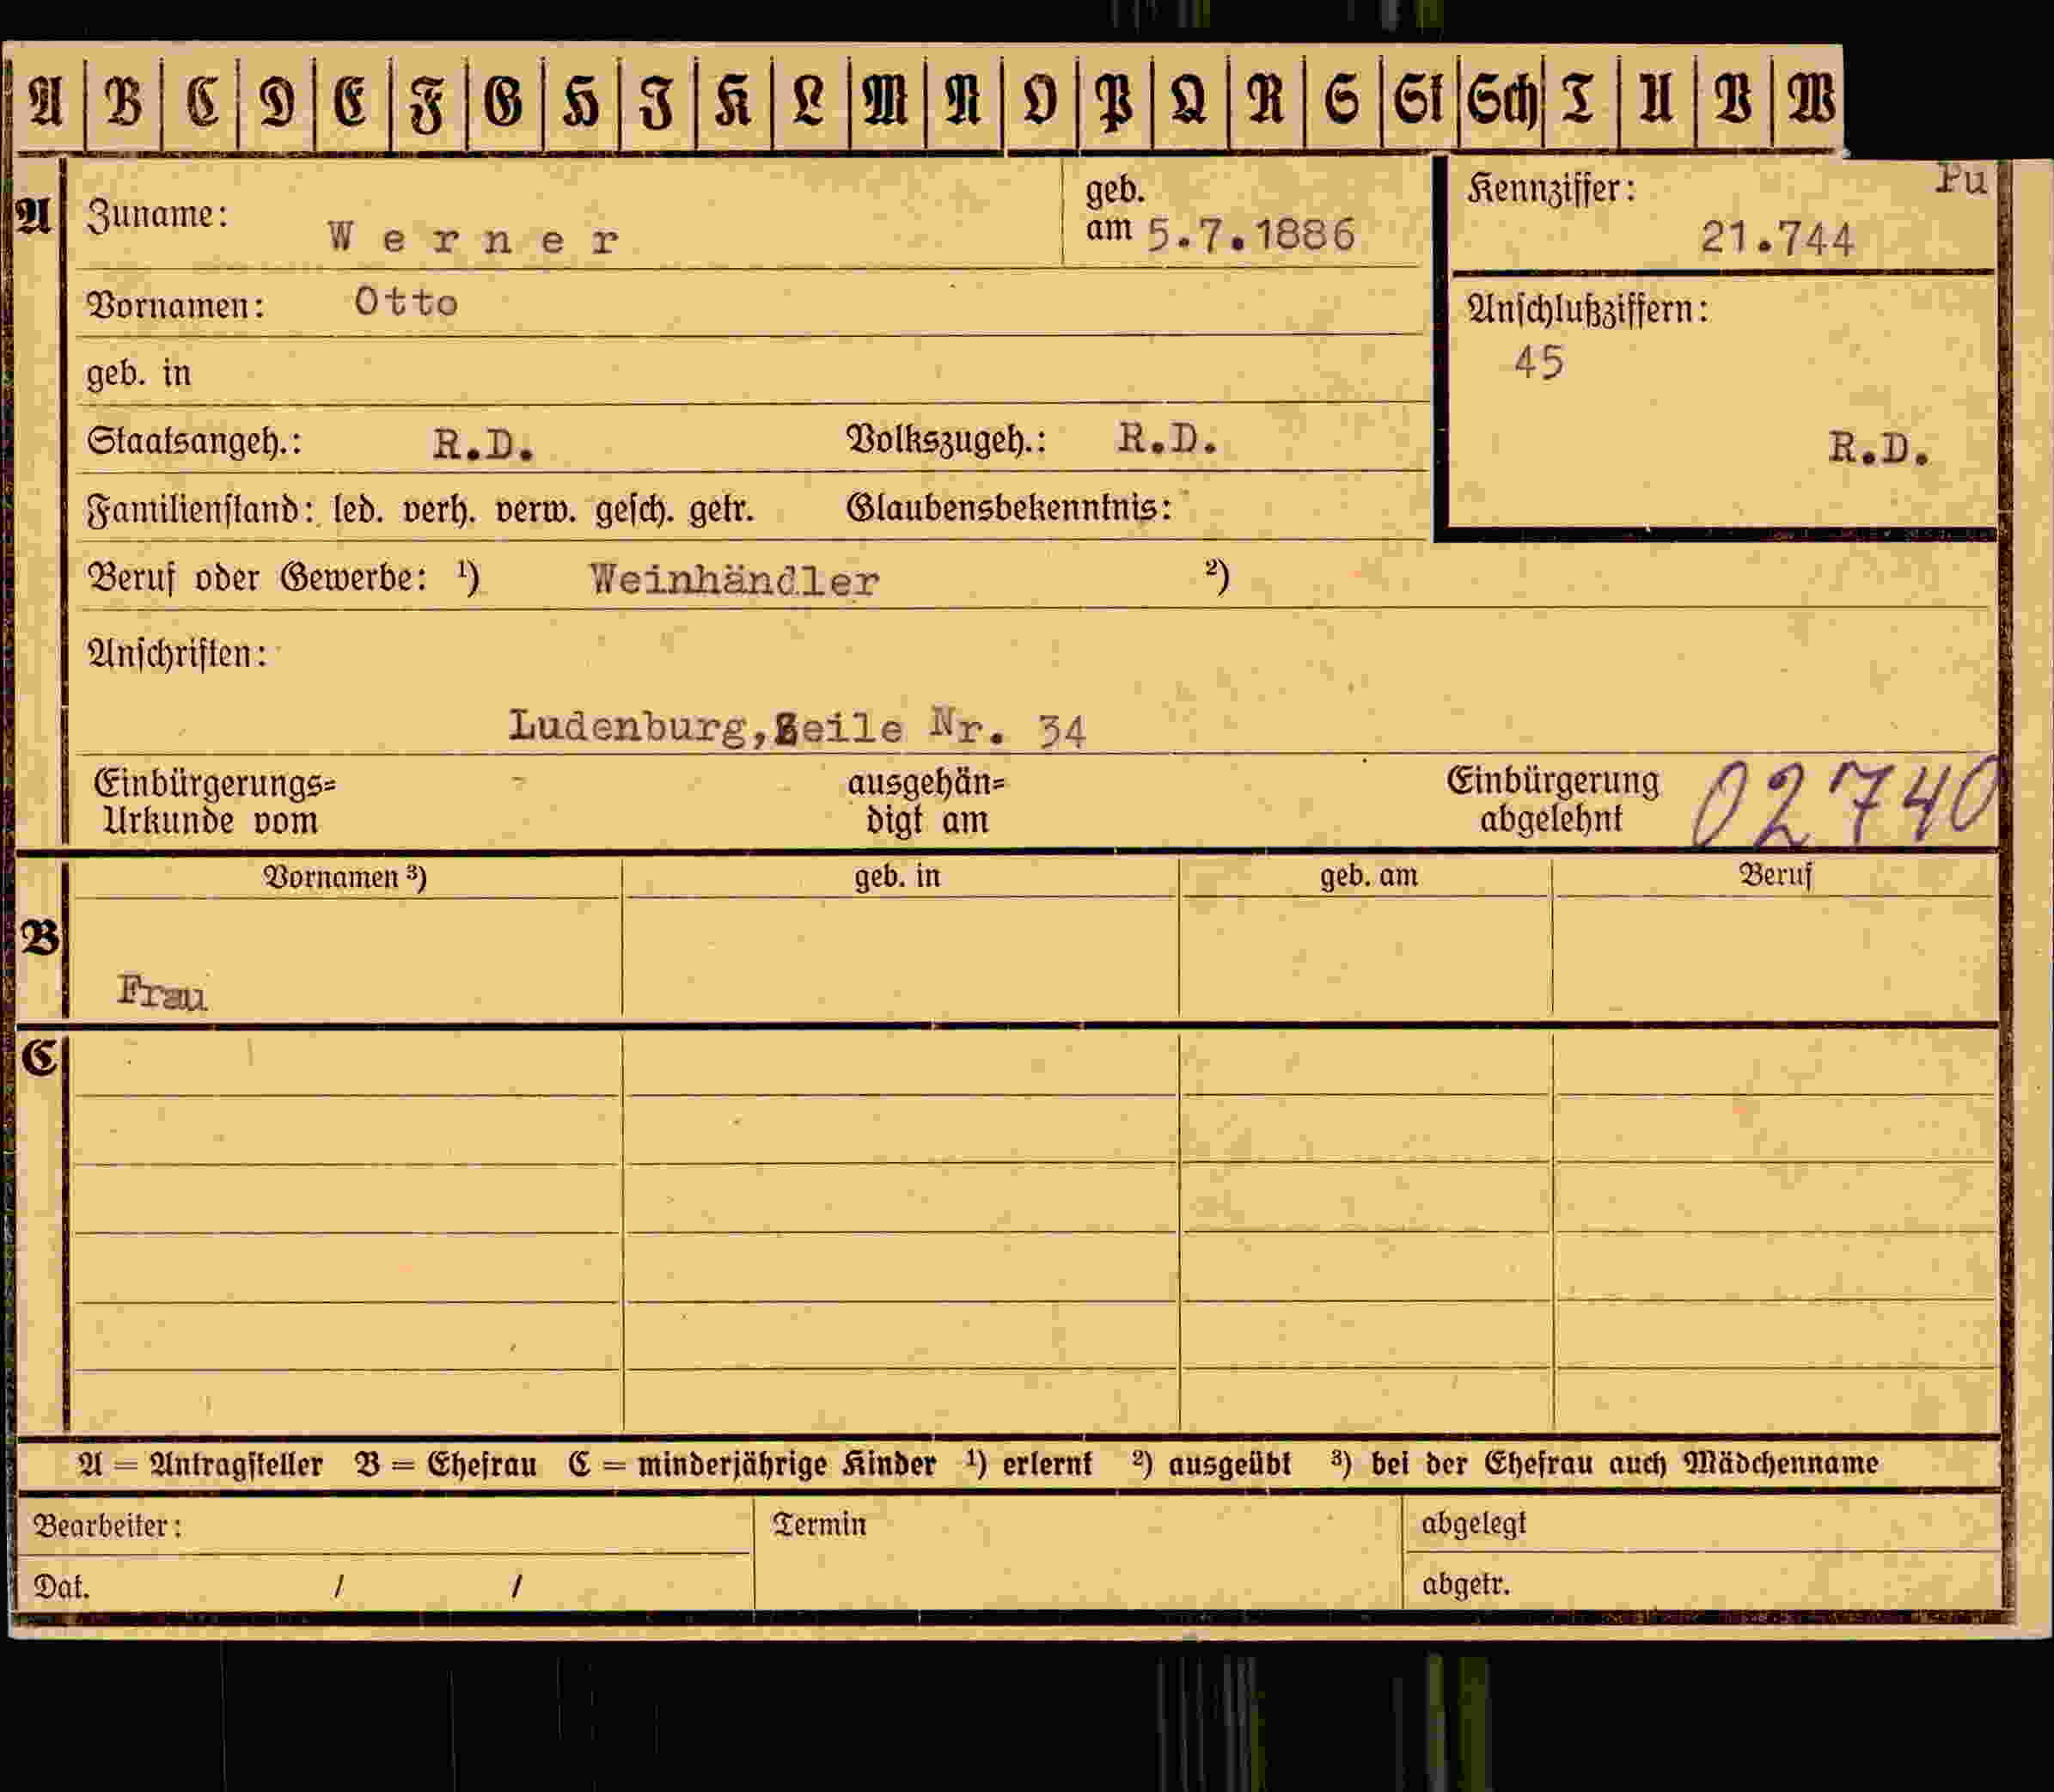 A B C D E F G H I K L M N O P Q R S St Sch T U V W
A Zuname: Werner geb. am 5.7.1886 Kennziffer: Pu 21.744
Vornamen: Otto Anschlußziffern:
45
geb. in
Staatsangeh.: R.D. Volkszugeh.: R.D. R.D.
Familienstand: led. verh. verw. gesch. getr. Glaubensbekenntnis:
Beruf oder Gewerbe: ¹) Weinhändler ²)
Anschriften:
Ludenburg, Zeile Nr. 34
Einbürgerungs= ausgehän= Einbürgerung 02740
Urkunde vom digt am abgelehnt
Vornamen ³) geb. in geb. am Beruf
B
Frau
C
A = Antragsteller B = Ehefrau C = minderjährige Kinder ¹) erlernt ²) ausgeübt ³) bei der Ehefrau auch Mädchenname
Bearbeiter: Termin abgelegt
Dat. / / abgetr.